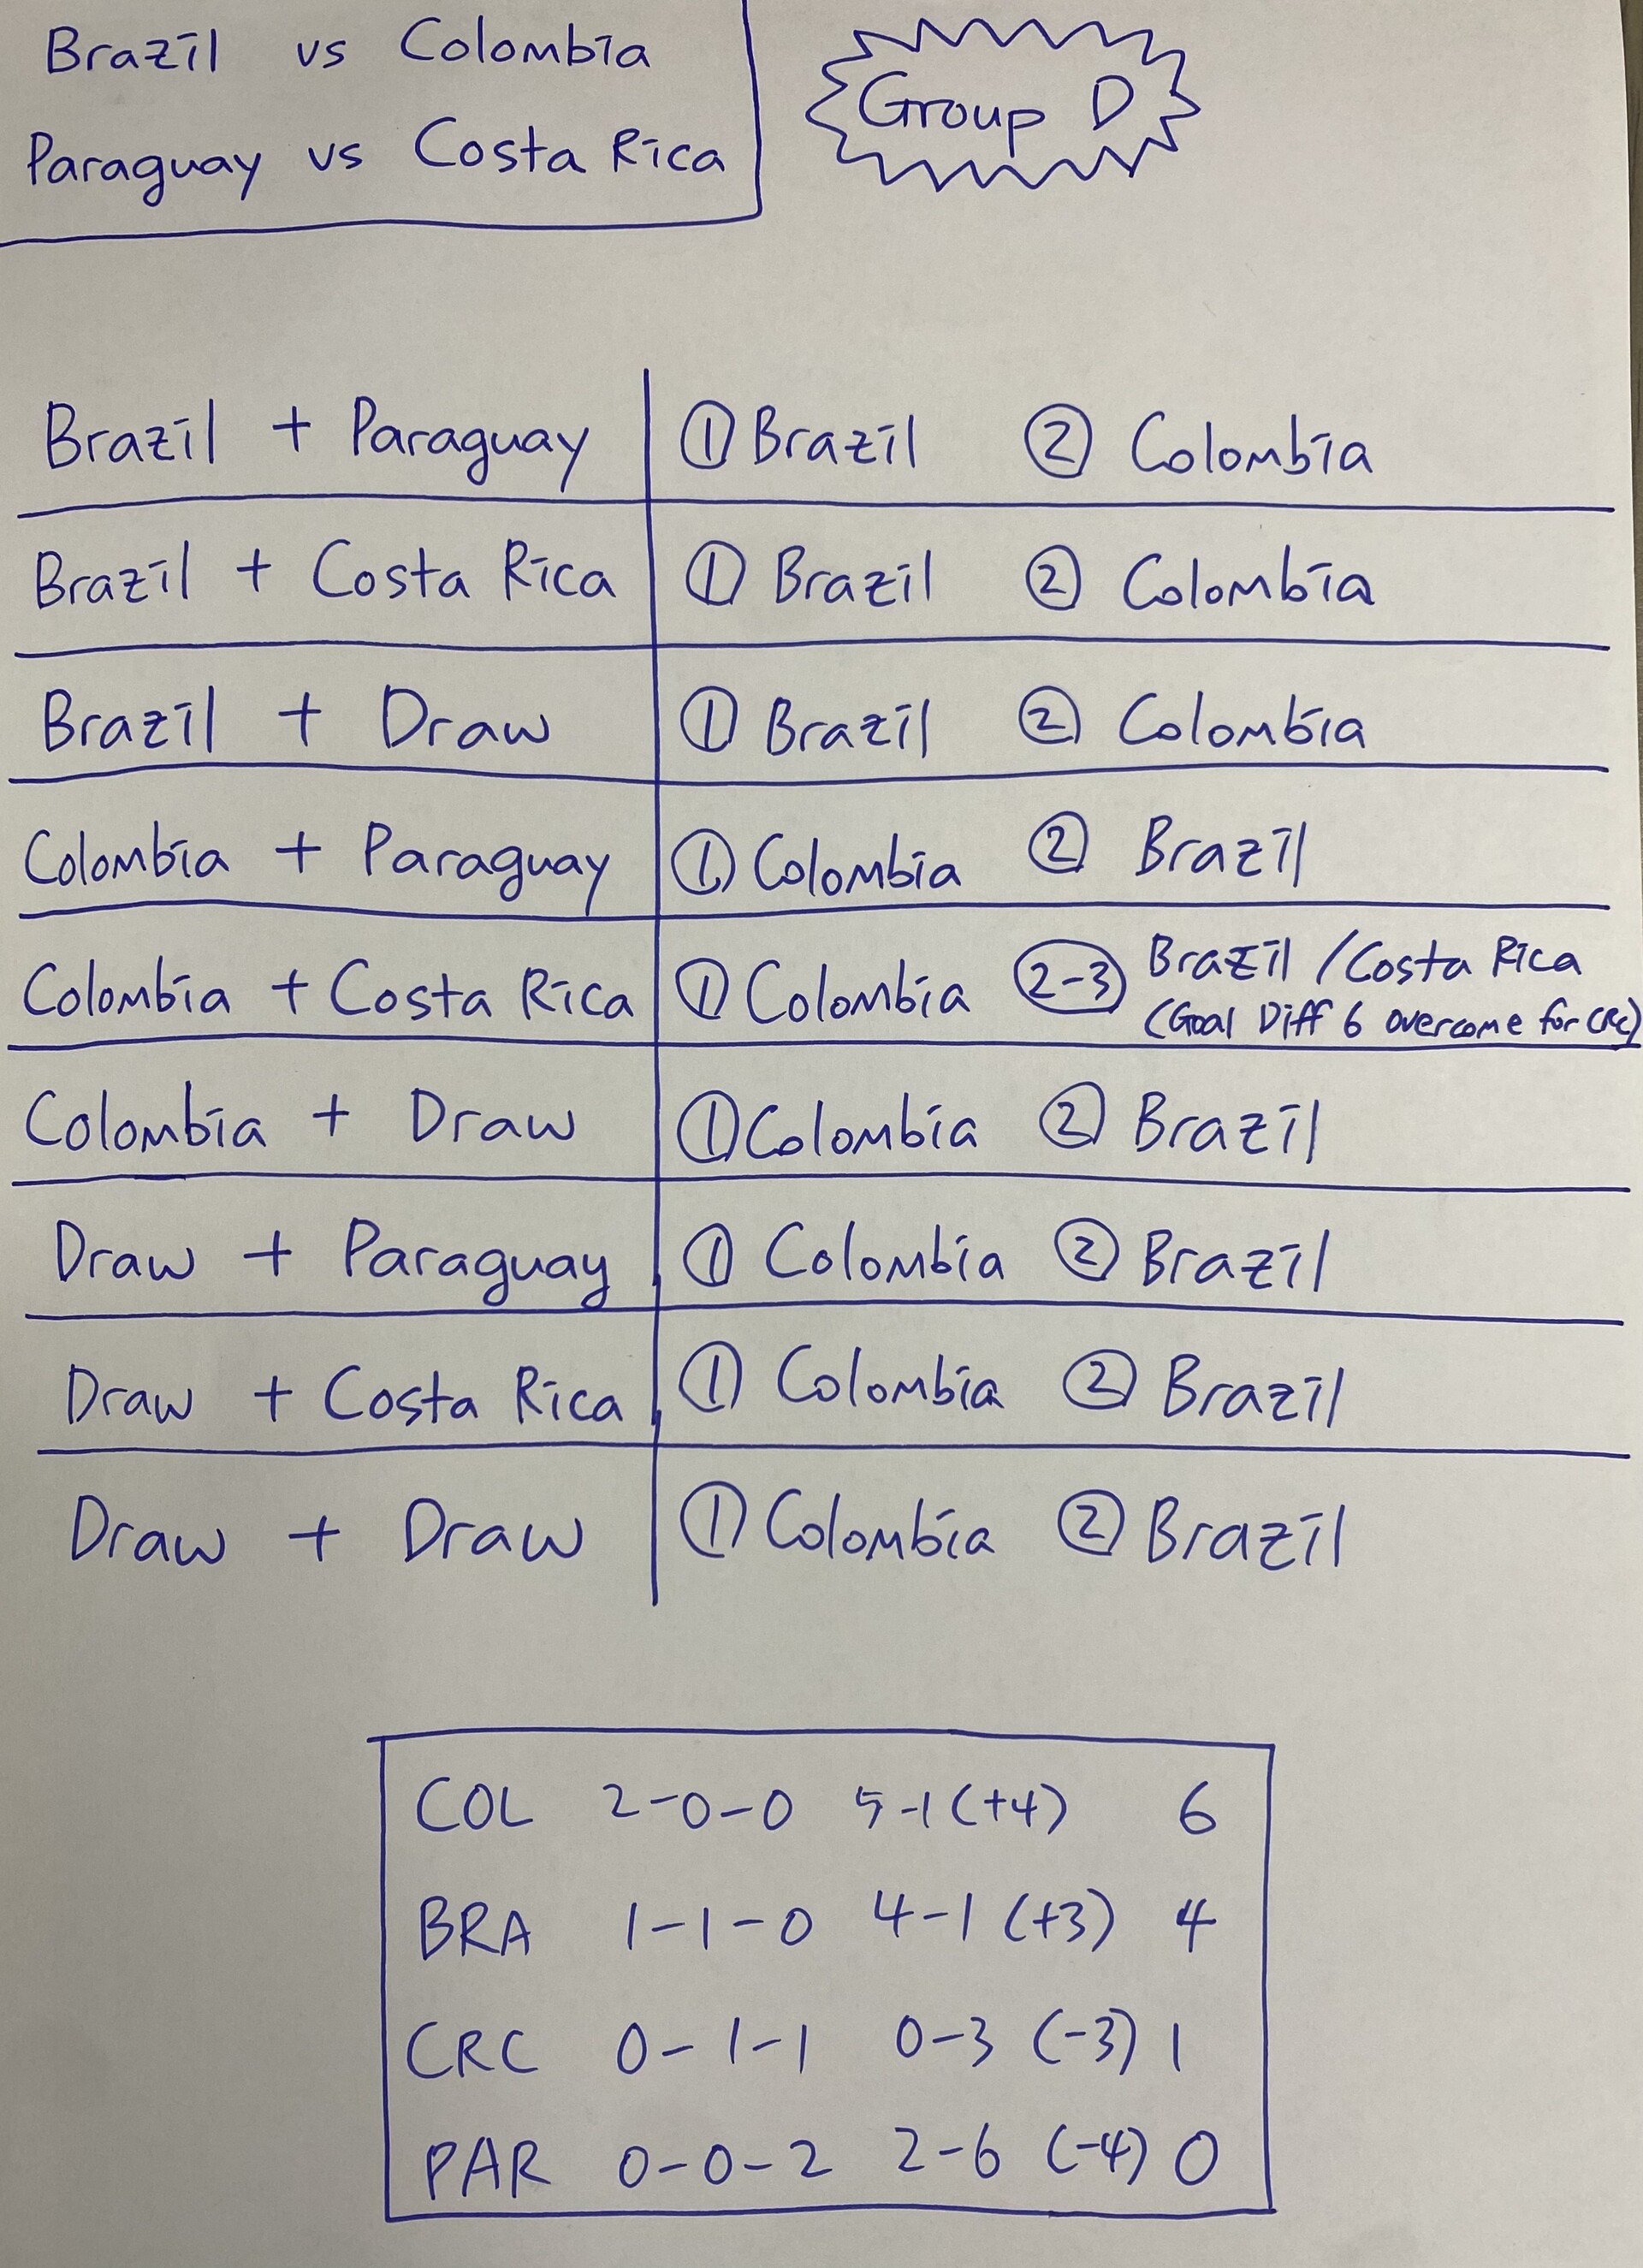 Brazil vs Colombia
Paraguay vs Costa Rica
Group D
Brazil + Paraguay ① Brazil ② Colombia
Brazil + Costa Rica ① Brazil ② Colombia
Brazil + Draw ① Brazil ② Colombia
Colombia + Paraguay ① Colombia ② Brazil
Colombia + Costa Rica ① Colombia 2-3 Brazil / Costa Rica
(Goal Diff 6 overcome for CRC)
Colombia + Draw ① Colombia ② Brazil
Draw + Paraguay ① Colombia ② Brazil
Draw + Costa Rica ① Colombia ② Brazil
Draw + Draw ① Colombia ② Brazil
COL 2-0-0 5-1 (+4) 6
BRA 1-1-0 4-1 (+3) 4
CRC 0-1-1 0-3 (-3) 1
PAR 0-0-2 2-6 (-4) 0